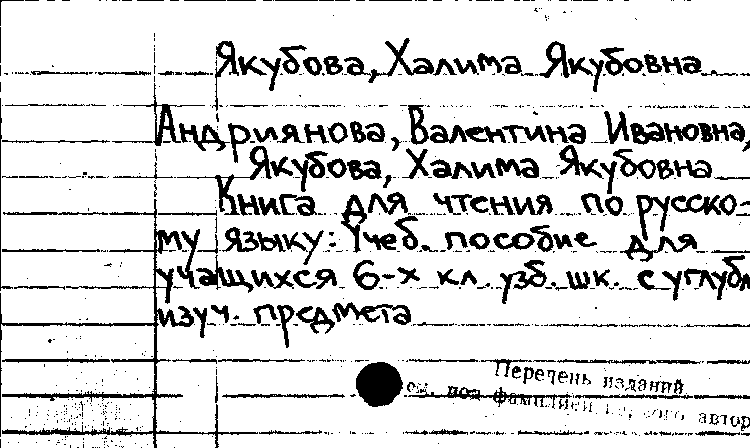 Якубова, Халима Якубовна
Андриянова, Валентина Ивановна,
Якубова, Халима Якубовна
Книга для чтения по русско-
му языку: Учеб. пособие для
учащихся 6-х кл. узб. шк. с углубл
изуч. предмета
Перечень изданий
см. под фамилией автор